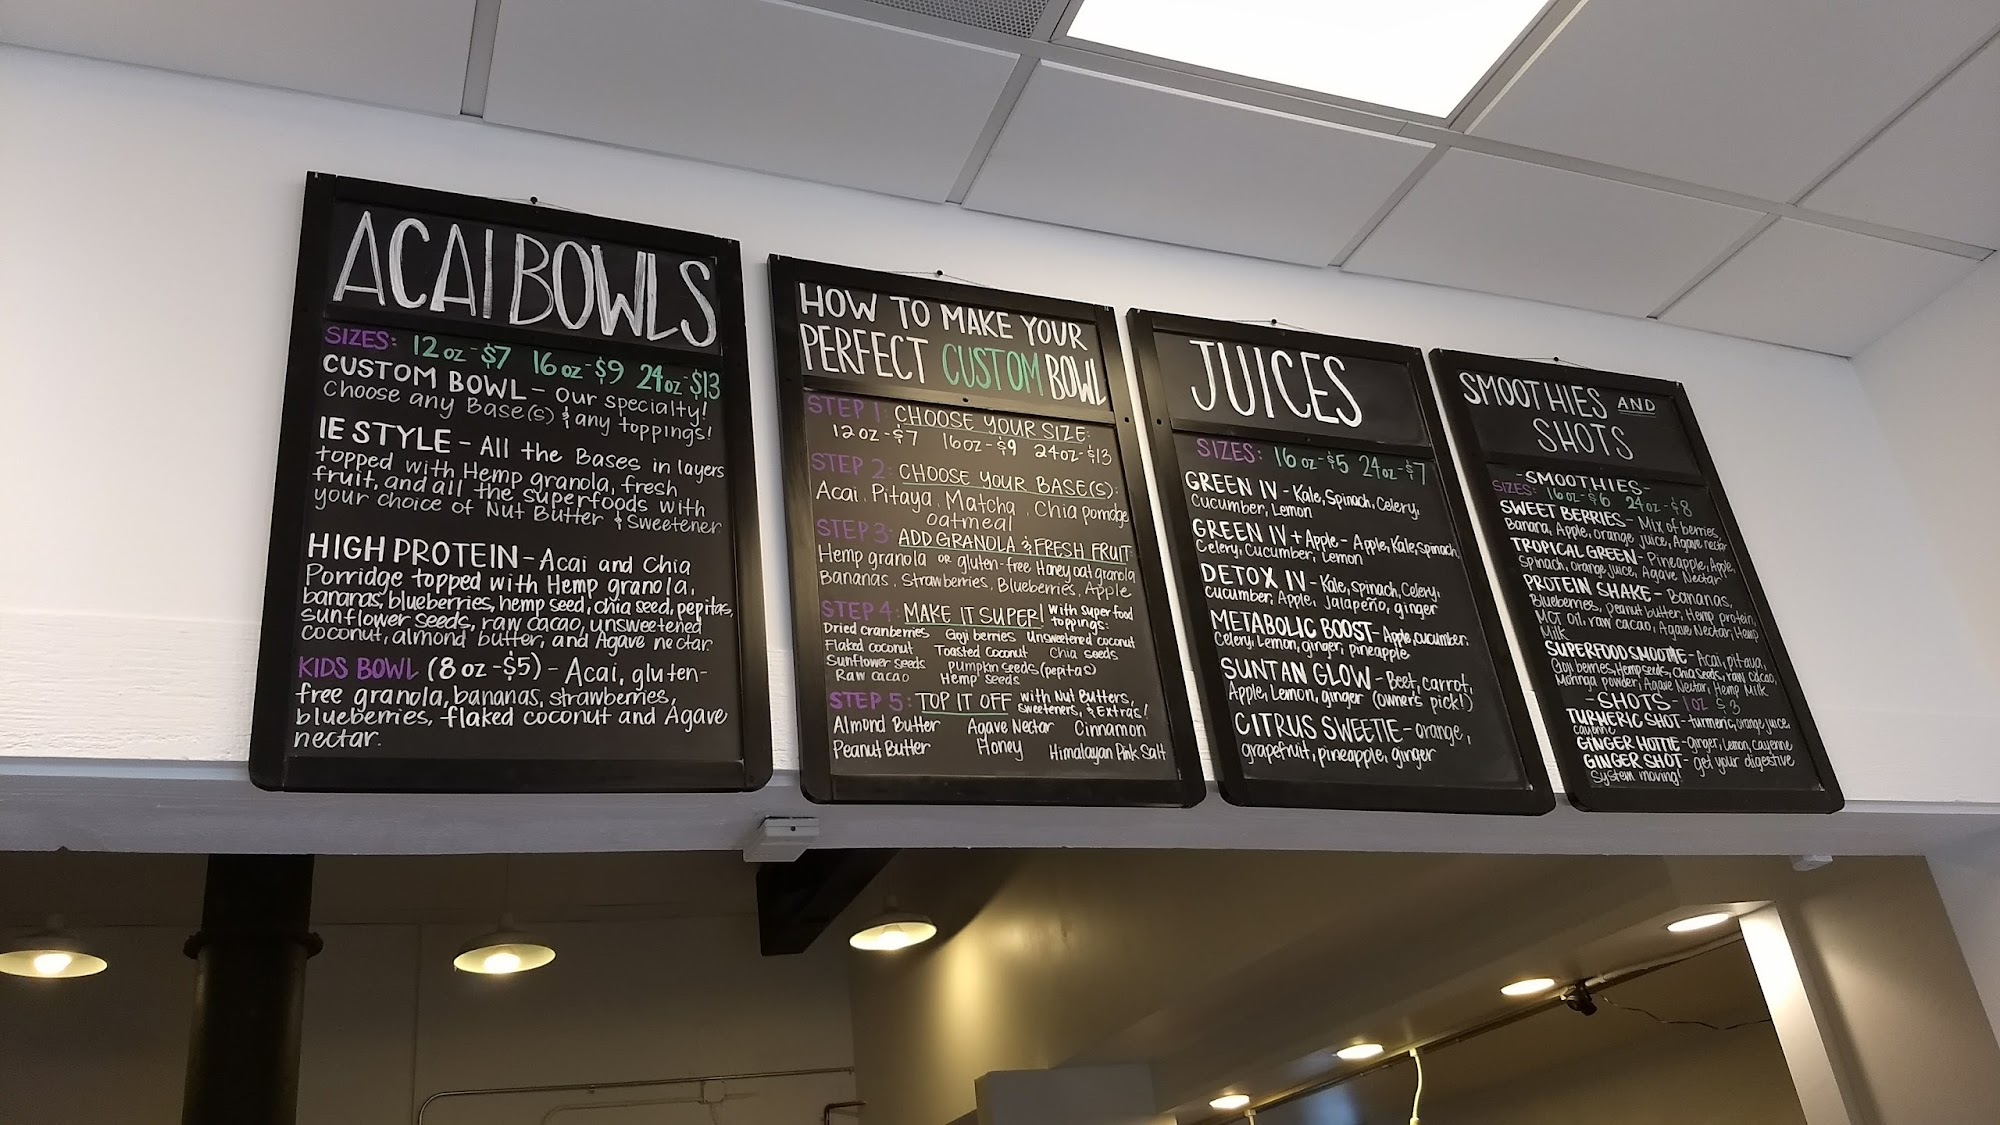 ACAI BOWLS
SIZES: 12oz-$7 16oz-$9 24oz-$13
CUSTOM BOWL - Our Specialty!
Choose any Base(s) & any toppings!
IE STYLE - All the Bases in layers
topped with Hemp granola, fresh
fruit, and all the superfoods with
your choice of Nut Butter & Sweetener
HIGH PROTEIN - Acai and Chia
Porridge topped with Hemp granola,
bananas, blueberries, hemp seed, chia seed, pepitas,
sunflower seeds, raw cacao, unsweetened
coconut, almond butter, and Agave nectar.
KIDS BOWL (8oz-$5) - Acai, gluten-
free granola, bananas, strawberries,
blueberries, flaked coconut and Agave
nectar.
HOW TO MAKE YOUR
PERFECT CUSTOM BOWL
STEP 1: CHOOSE YOUR SIZE:
12oz-$7 16oz-$9 24oz-$13
STEP 2: CHOOSE YOUR BASE(S):
Acai, Pitaya, Matcha, Chia porridge
oatmeal
STEP 3: ADD GRANOLA & FRESH FRUIT
Hemp granola or gluten-free Honey oat granola
Bananas, Strawberries, Blueberries, Apple
STEP 4: MAKE IT SUPER! with super food
toppings:
Dried cranberries Goji berries Unsweetened coconut
Flaked coconut Toasted Coconut Chia seeds
Sunflower seeds pumpkin seeds (pepitas)
Raw cacao Hemp seeds
STEP 5: TOP IT OFF with Nut Butters,
sweeteners, & Extras!
Almond Butter Agave Nectar Cinnamon
Peanut Butter Honey Himalayan Pink Salt
JUICES
SIZES: 16oz-$5 24oz-$7
GREEN IV - Kale, Spinach, Celery,
Cucumber, Lemon
GREEN IV + Apple - Apple, Kale, Spinach,
Celery, Cucumber, Lemon
DETOX IV - Kale, Spinach, Celery,
cucumber, Apple, Jalapeño, ginger
METABOLIC BOOST - Apple, cucumber,
Celery, Lemon, ginger, pineapple
SUNTAN GLOW - Beet, carrot,
Apple, Lemon, ginger (owner's pick!)
CITRUS SWEETIE - orange,
grapefruit, pineapple, ginger
SMOOTHIES AND
SHOTS
-SMOOTHIES-
SIZES: 16oz-$6 24oz-$8
SWEET BERRIES - Mix of berries,
Banana, Apple, orange juice, Agave nectar
TROPICAL GREEN - Pineapple, Apple,
Spinach, orange juice, Agave Nectar
PROTEIN SHAKE - Bananas,
Blueberries, peanut butter, Hemp protein,
MCT oil, raw cacao, Agave Nectar, Hemp
Milk
SUPERFOOD SMOOTHIE - Acai, pitaya,
Goji berries, Hemp seeds, Chia Seeds, raw cacao,
Moringa powder, Agave Nectar, Hemp Milk
-SHOTS- 1oz $3
TURMERIC SHOT - turmeric, orange juice,
cayenne
GINGER HOTTIE - ginger, Lemon, cayenne
GINGER SHOT - get your digestive
system moving!